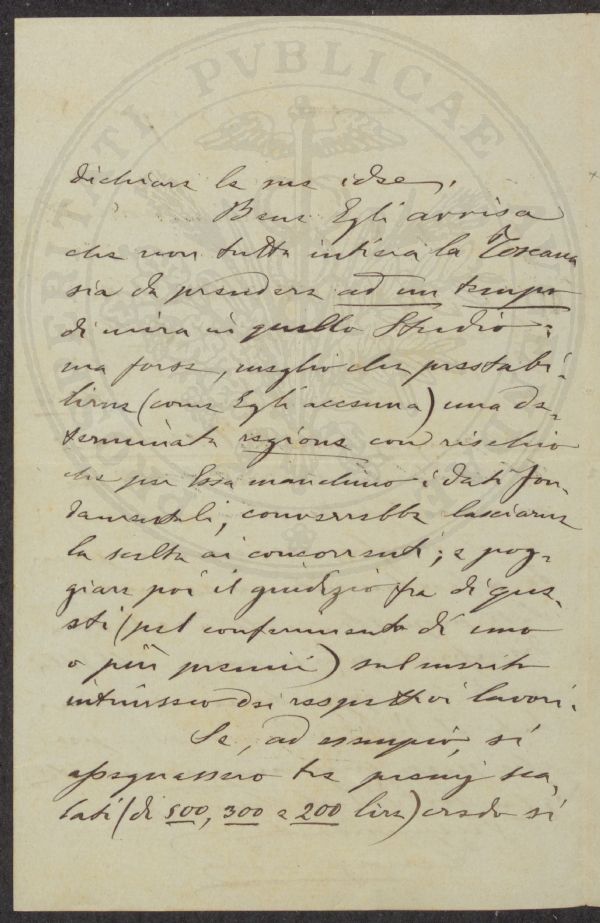 PVBLICAE
dichiara le sue idee.
Bene Egli avvisa
che non tutta intiera la Toscana
sia da prendere ad un tempo
di mira in quello Studio:
ma forse, meglio che prestabi-
lirne (come Egli accenna) una de-
terminata regione con rischio
che per Essa manchino i dati fon-
damentali, converrebbe lasciarne
la scelta ai concorrenti; e pog-
giare poi il giudizio fra di que-
sti (pel conferimento di uno
o più premii) sul merito
intrinseco dei respettivi lavori.
Se, ad esempio, si
assegnassero tre premj sca-
lati (di 500, 300 e 200 lire) credo si